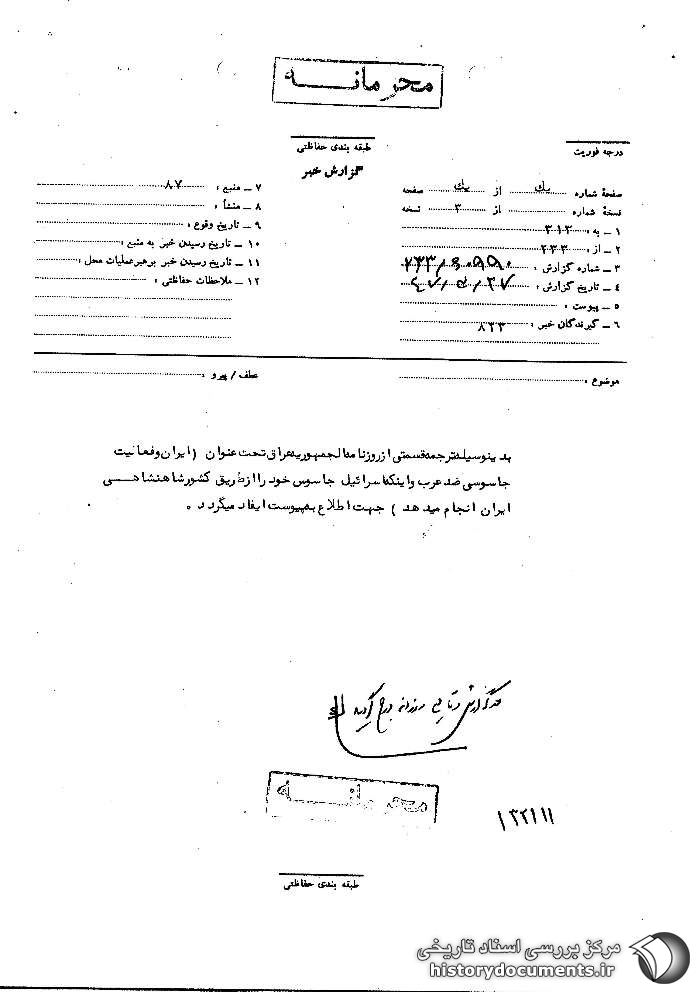 محرمانه
درجه فوریت
طبقه بندی حفاظتی
گزارش خبر
صفحهٔ شماره یک از یک صفحه
نسخهٔ شماره از ۳ نسخه
۱ ــ به : ۳۱۲
۲ ــ از : ۲۳۳
۳ ــ شماره گزارش :
۴ ــ تاریخ گزارش :
۵ ــ پیوست :
۶ ــ گیرندگان خبر : ۸۲۳
۷ ــ منبع : ۸۷
۸ ــ منشأ :
۹ ــ تاریخ وقوع :
۱۰ ــ تاریخ رسیدن خبر به منبع :
۱۱ ــ تاریخ رسیدن خبر برهبرعملیات محل :
۱۲ ــ ملاحظات حفاظتی :
موضوع :
عطف / پیرو :
بدینوسیله ترجمه قسمتی از روزنامه الجمهوریه عراق تحت عنوان (ایران و فعالیت
جاسوسی ضد عرب و اینکه اسرائیل جاسوس خود را از طریق کشور شاهنشاهی
ایران انجام میدهد ) جهت اطلاع به پیوست ایفاد میگردد .
محرمانه
۱۳۲۱۱۱
طبقه بندی حفاظتی
مرکز بررسی اسناد تاریخی
historydocuments.ir